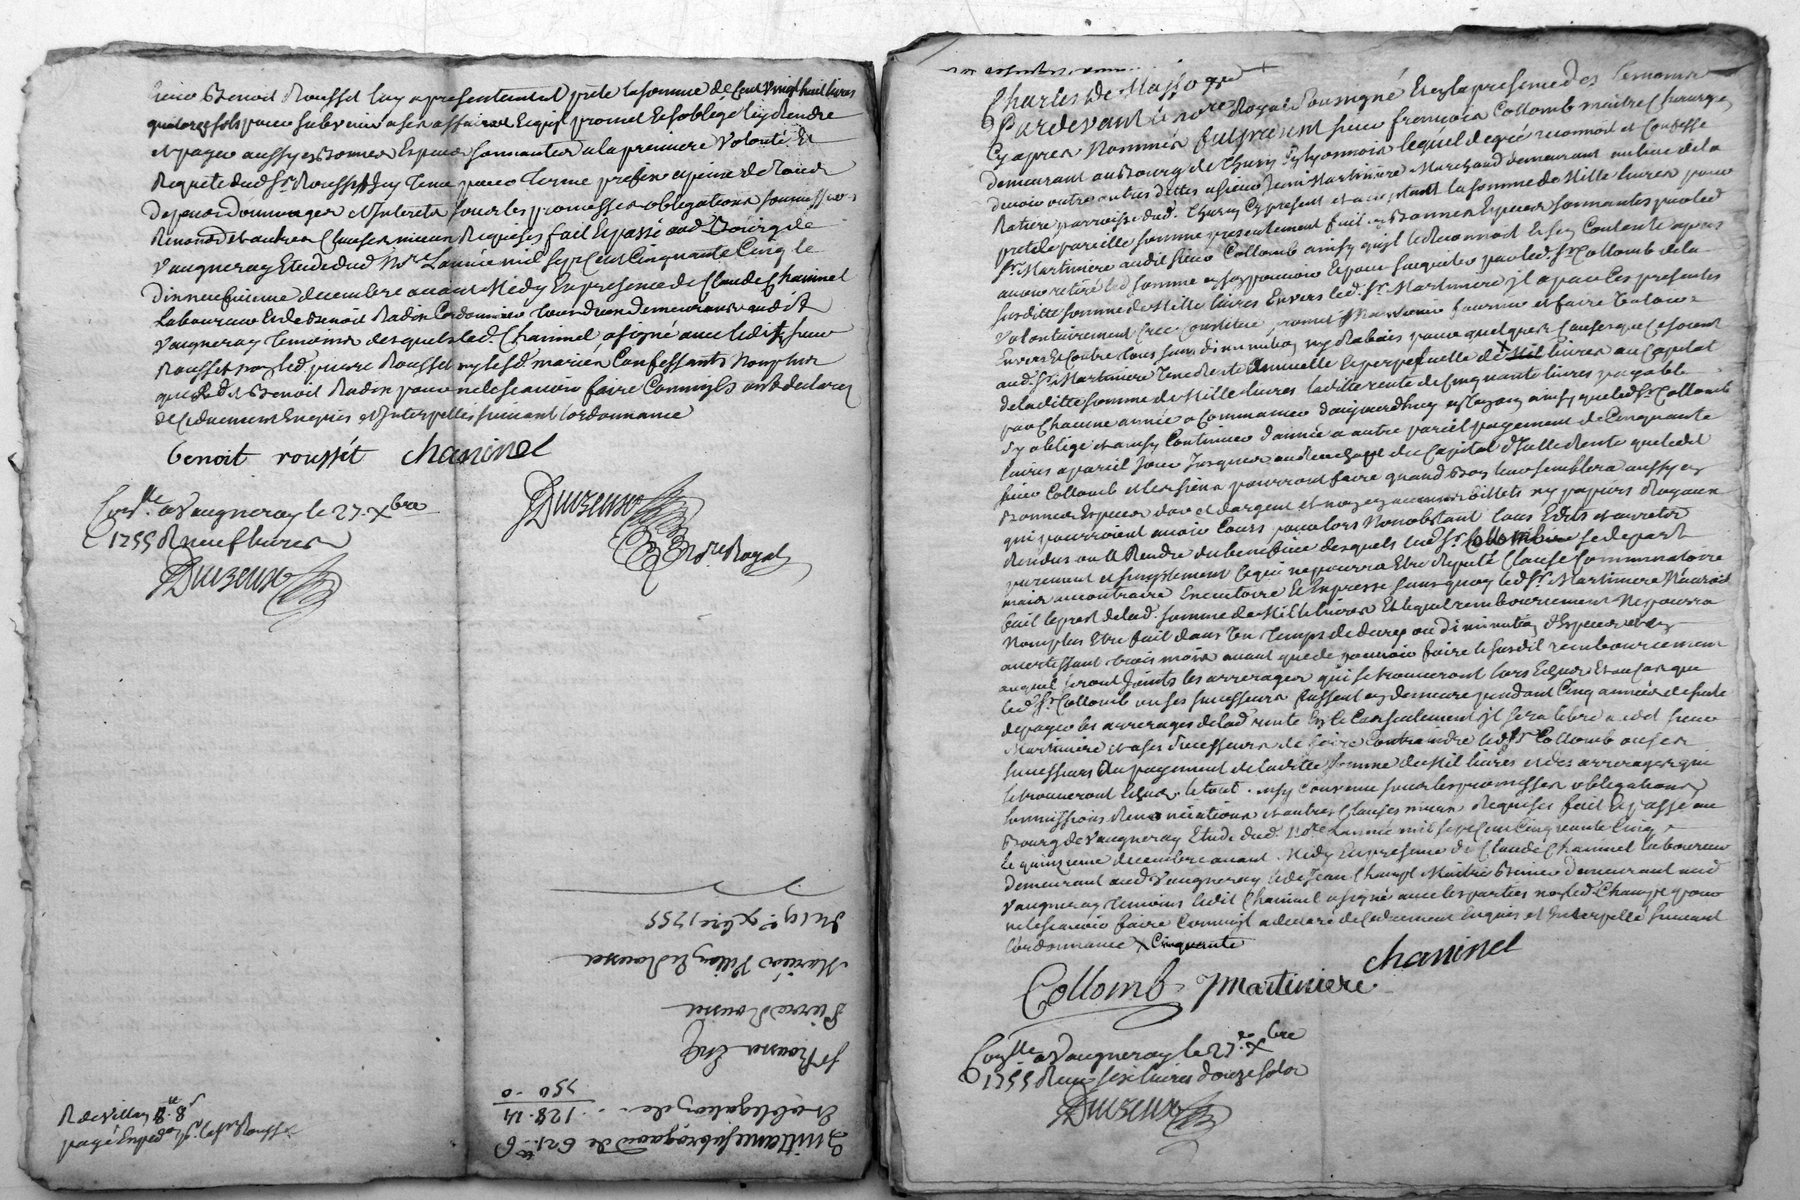 sieur Benoit Rousset luy a presentement prêté la somme de Cent vingt huit livres
quatorze sols pour subvenir a ses affaires lequel promet et s'oblige luy Rendre
et payer aussy en bonnes Especes sonnantes a la premiere volonté et
Requete dud. Sr. Rousset pour terme prefix a peine de tous
depens dommages et Interets sous les promesses obligations soumissions
Renonciations et autres Clauses mieux Requises fait et passé aud. Bourg de
Vaugneray Etude dud. Nre. L'année mil sept Cent Cinquante Cinq le
dixneufvieme decembre avant Midy En presence de Claude Chaninel
Laboureur et de Benoit Radon Cordonnier demeurants audit
Vaugneray temoins desquels led. Chaninel a signé avec ledit sieur
Rousset non led. pierre Rousset ny lesd. mariés Confessants non plus
que led. Benoit Radon pour ne le scavoir faire Comm'ils ont declaré
de ce duement Enquis et Interpellés suivant l'ordonnance
benoit roussét chaninel
Conllé. a Vaugneray le 27. Xbre
1755 Reçu neuf livres
Nore. Royal
du 19e. xbre 1755
Mariés Rousset
Pierre Rousset
Sr Rousset
750 - 0
128. 14
Et obligation de
Quittance subrogatoire de 621. 6
R de Villon 8
Charles de Masso
Pardevant le Nore Royal soussigné Et en la presence des temoins
Cy apres Nommés fut present sieur françois Collomb maitre Chirurgien
demeurant au Bourg de Thurin en lyonnois lequel de gré reconnoit et Confesse
devoir outre autres dettes a sieur Jean Martiniere Marchand demeurant au lieu de la
Ratiere parroisse dud. Thurin Cy present et acceptant la somme de Mille livres pour
prêt de pareille somme presentement fait en bonnes Especes sonnantes par led.
Sr. Martiniere audit sieur Collomb ainsy qu'il le Reconnoit et s'en Contente apres
avoir retiré lad. somme a son pouvoir Et pour s'acquiter par led. Sr. Collomb de la
susditte somme de Mille livres Envers led. Sr. Martiniere il a par les presentes
Volontairement Créé Constitué promet Maintenir fournir et faire valoir
Envers et Contre tous sans diminution ny Rabais pour quelques Causes que ce soient
aud. Sr. Martiniere une Rente Annuelle et perpetuelle de X Mil livres au Capital
de laditte somme de Mille livres laditte rente de Cinquante livres payable
par Chacune année a Commancer d'aujourdhuy en un an ainsy que led. Sr. Collomb
s'y oblige et ainsy Continuer d'année a autre pareil payement de Cinquante
livres a pareil Jour Jusques au Remboursement du Capital d'icelle Rente que ledit
sieur Collomb et les siens pourront faire quand bon leur semblera aussy en
bonnes Especes d'or et d'argent et non en aucuns billets ny papiers Royaux
qui pourroient avoir Cours pour lors Nonobstant tous Edits et arrets
Rendus ou a Rendre du benefice desquels led. Sr. Collomb se depart
purement et simplement Ce qui ne pourra Etre reputé Clause Comminatoire
mais au contraire Executoire Et Expresse sans quoy led. Sr. Martiniere N'auroit
fait le prest de lad. somme de Mille livres Et lequel remboursement Ne pourra
Non plus Etre fait dans un temps de decry ou diminution d'Especes et en
avertissant trois mois avant que de pouvoir faire le susdit remboursement
auquel seront Joints les arrerages qui se trouveront lors Echus Et au Cas que
led. Sr. Collomb ou ses successeurs fussent en demeure pendant Cinq années de suite
de payer les arrerages de lad. rente En ce Cas seulement il sera libre audit sieur
Martiniere et a ses successeurs de faire Contraindre led. Sr. Collomb ou ses
successeurs Au payement de laditte somme de Mil livres et des arrerages qui
se trouveront Echus. le tout ainsy Convenu sous les promesses obligations
soumissions Renonciations et autres Clauses mieux Requises fait Et passé au
Bourg de Vaugneray Etude dud. Nore. L'année mil sept Cent Cinquante Cinq
le quinzieme decembre avant Midy En presence de Claude Chaninel laboureur
demeurant aud. Vaugneray et de Jean Champt demeurant aud.
Vaugneray temoins ledit Chaninel a signé avec les parties non led. Champt pour
ne le scavoir faire Comm'il a declaré de ce duement Enquis et Interpellé suivant
l'ordonnance X Cinquante
Collomb JMartiniere chaninel
Conllé a Vaugneray le 27. Xbre
1755 Reçu six livres douze sols